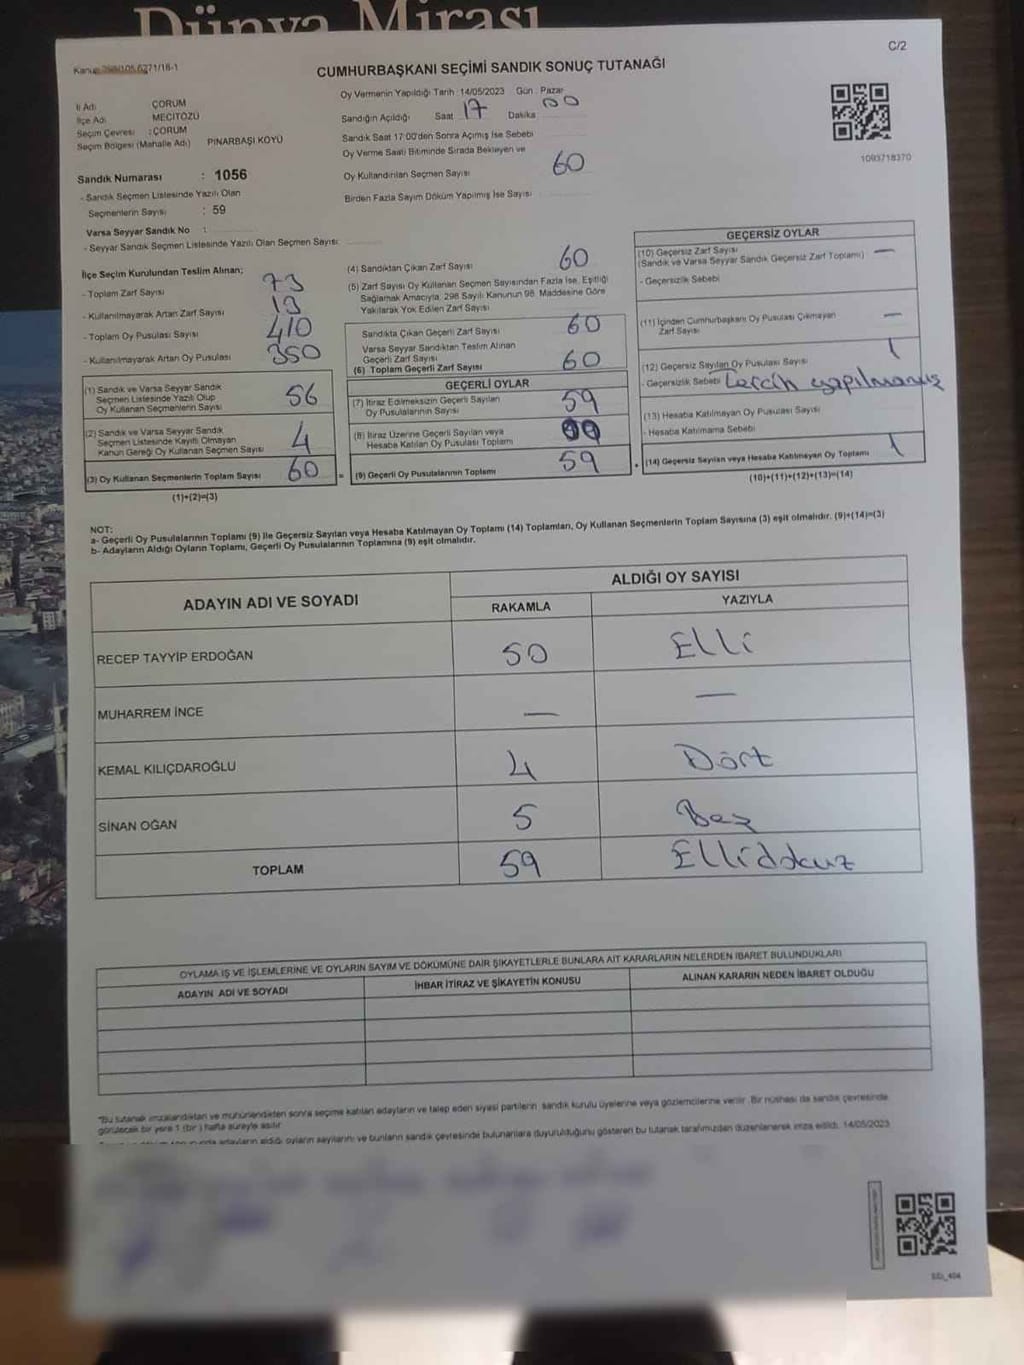 Dünya Mirası
C/2
CUMHURBAŞKANI SEÇİMİ SANDIK SONUÇ TUTANAĞI
İl Adı ÇORUM
İlçe Adı MECİTÖZÜ
Seçim Çevresi : ÇORUM
Seçim Bölgesi (Mahalle Adı) PINARBAŞI KÖYÜ
Sandık Numarası : 1056
- Sandık Seçmen Listesinde Yazılı Olan
Seçmenlerin Sayısı : 59
Varsa Seyyar Sandık No :
- Seyyar Sandık Seçmen Listesinde Yazılı Olan Seçmen Sayısı
Oy Vermenin Yapıldığı Tarih : 14/05/2023 Gün : Pazar
Sandığın Açıldığı Saat 17 Dakika 00
Sandık Saat 17:00'den Sonra Açılmış İse Sebebi
Oy Verme Saati Bitiminde Sırada Bekleyen ve
Oy Kullandırılan Seçmen Sayısı 60
Birden Fazla Sayım Döküm Yapılmış İse Sayısı
1093718370
İlçe Seçim Kurulundan Teslim Alınan;
- Toplam Zarf Sayısı 73
- Kullanılmayarak Artan Zarf Sayısı 13
- Toplam Oy Pusulası Sayısı 410
- Kullanılmayarak Artan Oy Pusulası 350
(1) Sandık ve Varsa Seyyar Sandık
Seçmen Listesinde Yazılı Olup
Oy Kullanan Seçmenlerin Sayısı 56
(2) Sandık ve Varsa Seyyar Sandık
Seçmen Listesinde Kayıtlı Olmayan
Kanun Gereği Oy Kullanan Seçmen Sayısı 4
(3) Oy Kullanan Seçmenlerin Toplam Sayısı 60 =
(1)+(2)=(3)
(4) Sandıktan Çıkan Zarf Sayısı 60
(5) Zarf Sayısı Oy Kullanan Seçmen Sayısından Fazla İse, Eşitliği
Sağlamak Amacıyla, 298 Sayılı Kanunun 98. Maddesine Göre
Yakılarak Yok Edilen Zarf Sayısı
Sandıkta Çıkan Geçerli Zarf Sayısı 60
Varsa Seyyar Sandıktan Teslim Alınan
Geçerli Zarf Sayısı
(6) Toplam Geçerli Zarf Sayısı 60
GEÇERLİ OYLAR
(7) İtiraz Edilmeksizin Geçerli Sayılan
Oy Pusulalarının Sayısı 59
(8) İtiraz Üzerine Geçerli Sayılan veya
Hesaba Katılan Oy Pusulası Toplamı
(9) Geçerli Oy Pusulalarının Toplamı 59 +
GEÇERSİZ OYLAR
(10) Geçersiz Zarf Sayısı —
(Sandık ve Varsa Seyyar Sandık Geçersiz Zarf Toplamı)
- Geçersizlik Sebebi
(11) İçinden Cumhurbaşkanı Oy Pusulası Çıkmayan
Zarf Sayısı —
(12) Geçersiz Sayılan Oy Pusulası Sayısı 1
- Geçersizlik Sebebi Tercih yapılmamış
(13) Hesaba Katılmayan Oy Pusulası Sayısı
- Hesaba Katılmama Sebebi
(14) Geçersiz Sayılan veya Hesaba Katılmayan Oy Toplamı 1
(10)+(11)+(12)+(13)=(14)
NOT:
a- Geçerli Oy Pusulalarının Toplamı (9) ile Geçersiz Sayılan veya Hesaba Katılmayan Oy Toplamı (14) Toplamları, Oy Kullanan Seçmenlerin Toplam Sayısına (3) eşit olmalıdır. (9)+(14)=(3)
b- Adayların Aldığı Oyların Toplamı, Geçerli Oy Pusulalarının Toplamına (9) eşit olmalıdır.
ADAYIN ADI VE SOYADI ALDIĞI OY SAYISI
RAKAMLA YAZIYLA
RECEP TAYYİP ERDOĞAN 50 Elli
MUHARREM İNCE — —
KEMAL KILIÇDAROĞLU 4 Dört
SİNAN OĞAN 5 Beş
TOPLAM 59 Ellidokuz
OYLAMA İŞ VE İŞLEMLERİNE VE OYLARIN SAYIM VE DÖKÜMÜNE DAİR ŞİKAYETLERLE BUNLARA AİT KARARLARIN NELERDEN İBARET BULUNDUKLARI
ADAYIN ADI VE SOYADI İHBAR İTİRAZ VE ŞİKAYETİN KONUSU ALINAN KARARIN NEDEN İBARET OLDUĞU
*Bu tutanak imzalandıktan ve mühürlendikten sonra seçime katılan adayların ve talep eden siyasi partilerin sandık kurulu üyelerine veya gözlemcilerine verilir. Bir nüshası da sandık çevresinde
görülecek bir yere 1 (bir) hafta süreyle asılır.
adayların aldığı oyların sayılarını ve bunların sandık çevresinde bulunanlara duyurulduğunu gösteren bu tutanak tarafımızdan düzenlenerek imza edildi. 14/05/2023